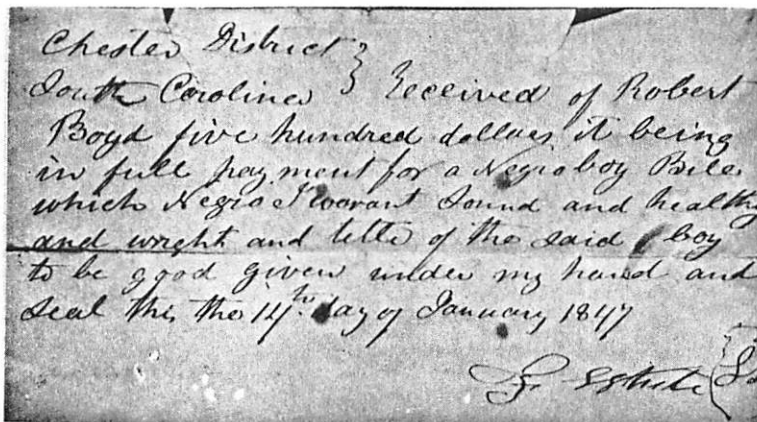 Chester District }
South Carolina } Received of Robert
Boyd five hundred dollars it being
in full payment for a Negro boy
which Negro I warant Sound and healthy
and wright and title of the said boy
to be good given under my hand and
Seal this the 14th day of January 1847